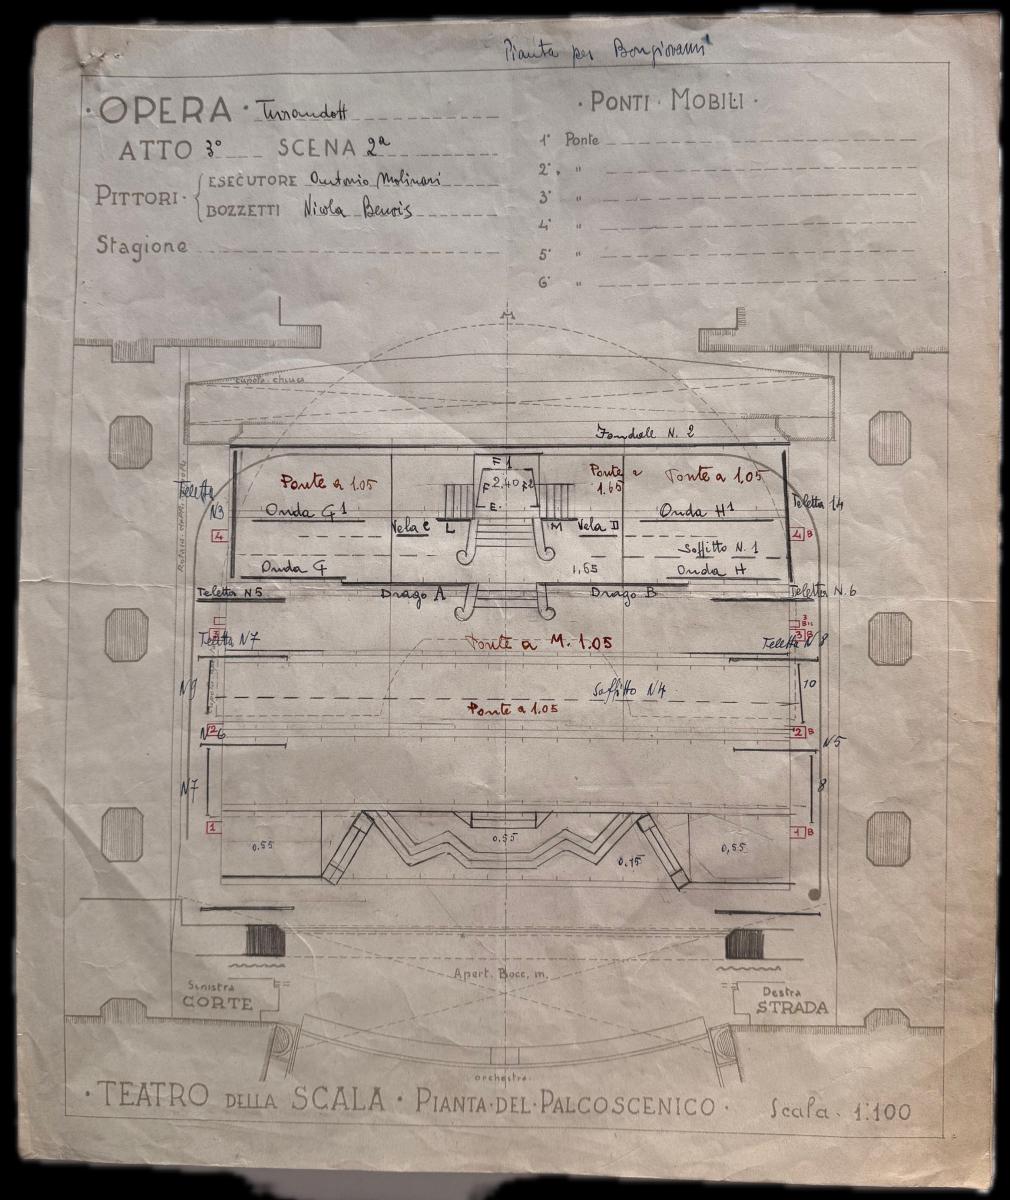 Pianta per Bongiovanni
·OPERA· Turandott
ATTO 3° SCENA 2ª
PITTORI· ESECUTORE Antonio Molinari
BOZZETTI Nicola Benois
Stagione
·PONTI·MOBILI·
1° Ponte
2° "
3° "
4° "
5° "
6° "
cupola chiusa
Fondale N. 2
Ponte a 1.05
F 1
Ponte a
1.65
Ponte a 1.05
F 2,40 F2
E
Teletta
N3
Teletta 14
Onda G1
Vela C
L
M
Vela D
Onda H1
4
4 B
Soffitto N. 1
Onda G
1,65
Onda H
Teletta N5
Drago A
Drago B
Teletta N.6
3
3 Bis
3 B
Teletta N7
Ponte a M. 1.05
Teletta N 8
N9
Soffitto N4
10
Ponte a 1.05
2
2 B
N6
N5
N7
8
1
1 B
0.55
0,55
0,15
0,55
Apert. Bocc. m.
Sinistra
CORTE
Destra
STRADA
orchestra
·TEATRO DELLA SCALA· PIANTA·DEL·PALCOSCENICO· Scala· 1:100